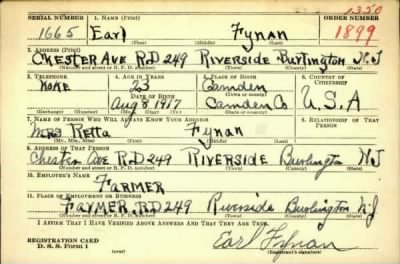 1350
SERIAL NUMBER 1. NAME (Print) ORDER NUMBER
1665 Earl Fynan 1899
(First) (Middle) (Last)
2. ADDRESS (Print)
CHESTER AVE R.D 249 RIVERSIDE Burlington N.J
(Number and street or R. F. D. number) (Town) (County) (State)
3. TELEPHONE 4. AGE IN YEARS 5. PLACE OF BIRTH 6. COUNTRY OF CITIZENSHIP
NONE 23 Camden
DATE OF BIRTH (Town or county)
Aug 8 1917 Camden Co U.S.A
(Exchange) (Number) (Mo.) (Day) (Yr.) (State or country)
7. NAME OF PERSON WHO WILL ALWAYS KNOW YOUR ADDRESS 8. RELATIONSHIP OF THAT PERSON
Mrs Retta Fynan
(Mr., Mrs., Miss) (First) (Middle) (Last)
9. ADDRESS OF THAT PERSON
Chester Ave R.D 249 RIVERSIDE Burlington NJ
(Number and street or R. F. D. number) (Town) (County) (State)
10. EMPLOYER'S NAME
FARMER
11. PLACE OF EMPLOYMENT OR BUSINESS
FAYMER R.D 249 Riverside Burlington NJ
(Number and street or R. F. D. number) (Town) (County) (State)
I AFFIRM THAT I HAVE VERIFIED ABOVE ANSWERS AND THAT THEY ARE TRUE.
REGISTRATION CARD
D. S. S. Form 1 (over) Earl Fynan
(Registrant's signature)